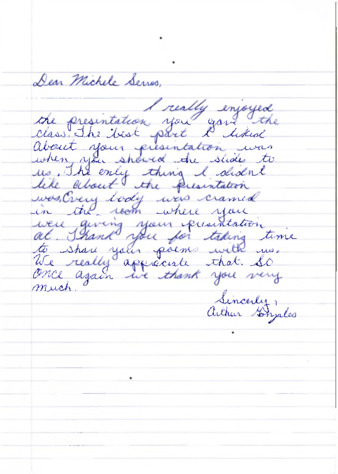 Dear Michele Serros,
I really enjoyed
the presintation you gave the
class. The best part I liked
About your presentation was
when you showed the slides to
us. The only thing I didn't
like about the presentation
was Every body was cramed
in the room where you
were giving your presintation
at. Thank you for taking time
to share your poems with us.
We really appriciate that. SO
ONCE again we thank you very
much.
Sincerly,
Arthur Gonzales